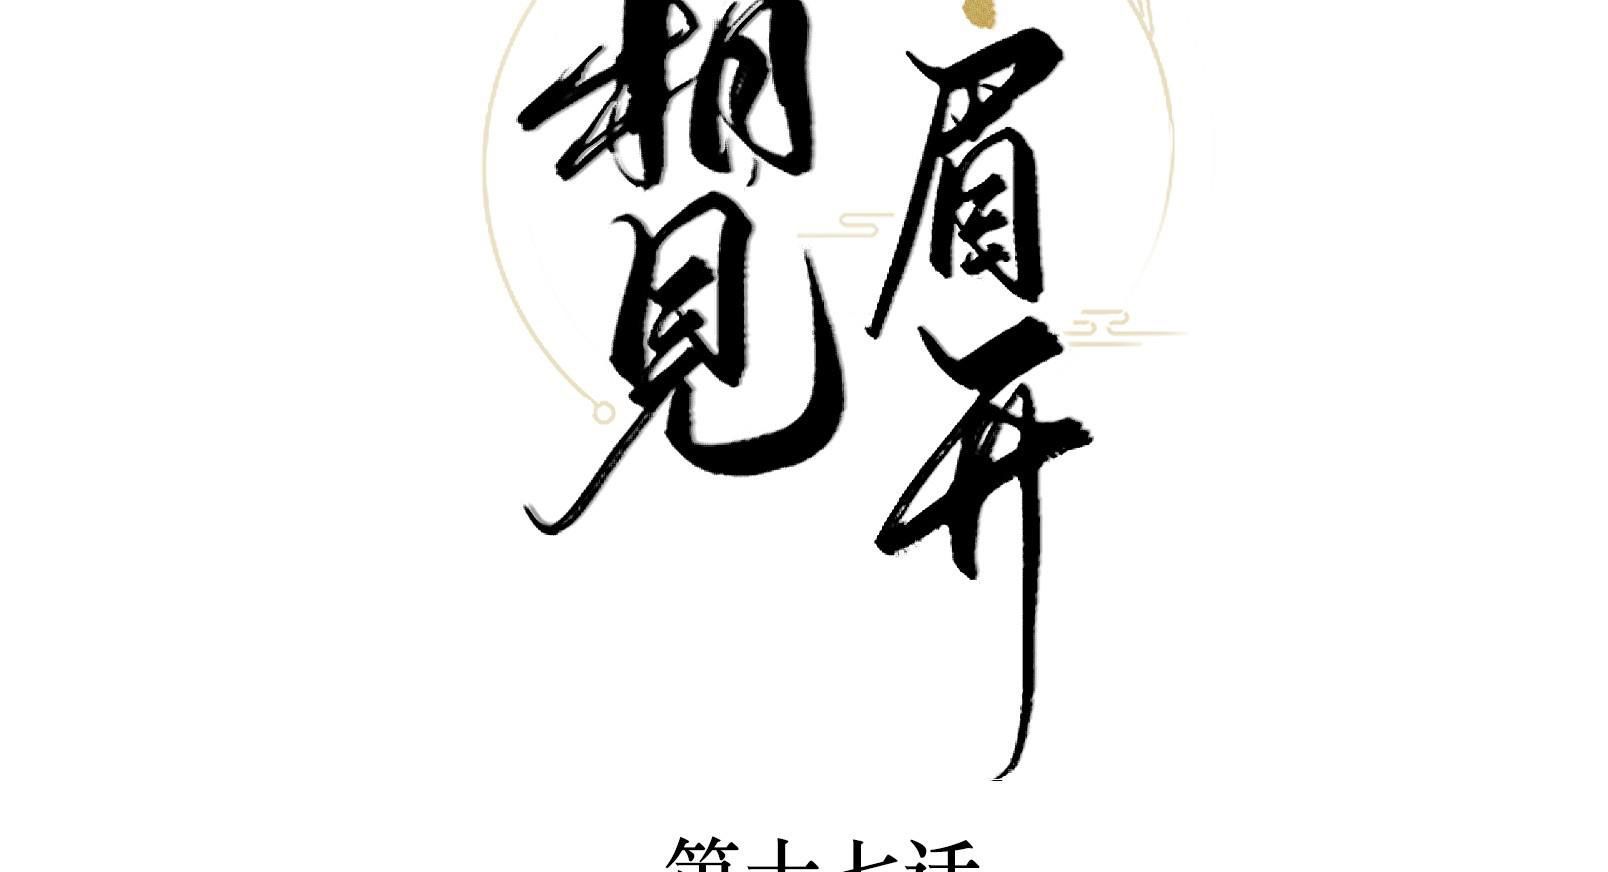 眉开
相見
第十七话